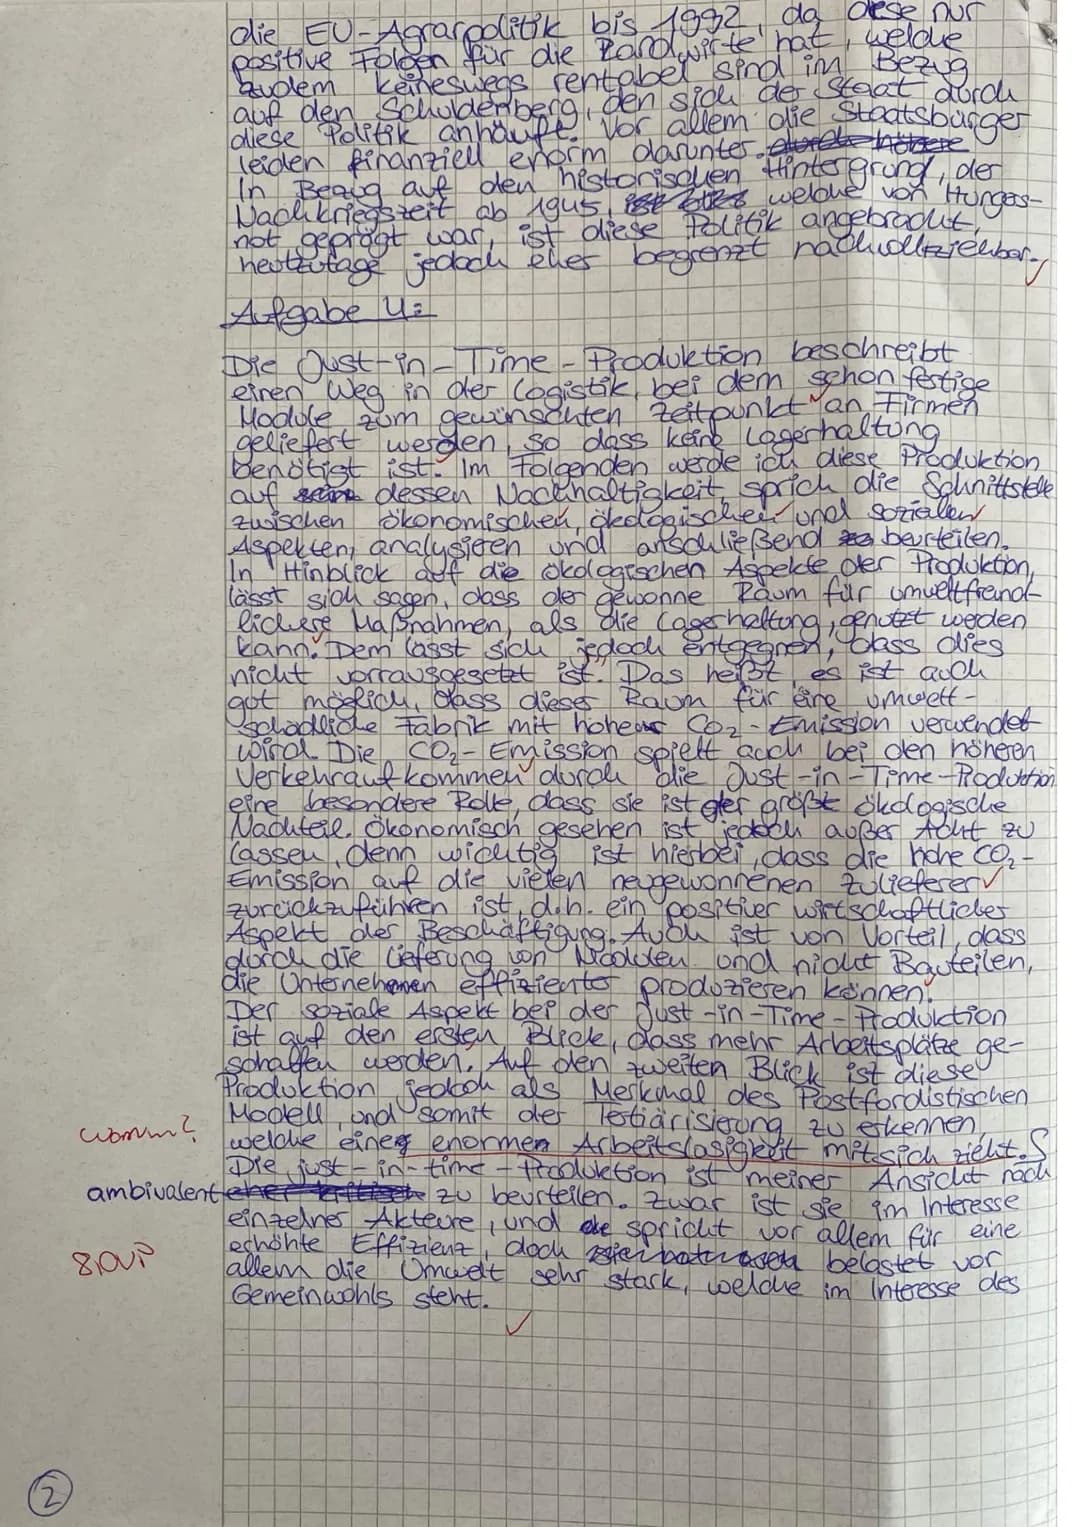 die EU-Agrarpolitik bis 1992, da diese nur
positive Folgen für die Landwirte hat, welche
zudem keineswegs rentabel sind im Bezug
auf den Schuldenberg, den sich der Staat durch
diese Politik anhäuft. Vor allem die Staatsbürger
leiden finanziell enorm darunter. durch höhere
In Bezug auf den historischen Hintergrund, der
Nachkriegszeit ab 1945, ist welche von Hungers-
not geprägt war, ist diese Politik angebracht,
heutzutage jedoch eher begrenzt nachvollziehbar.
Aufgabe 4:
Die Just-in-Time-Produktion beschreibt
einen Weg in der Logistik, bei dem schon fertige
Module zum gewünschten Zeitpunkt an Firmen
geliefert werden, so dass keine Lagerhaltung
benötigt ist. Im Folgenden werde ich diese Produktion
auf dessen Nachhaltigkeit, sprich die Schnittstelle
zwischen ökonomischen, ökologischen und sozialen
Aspekten, analysieren und anschließend beurteilen.
In Hinblick auf die ökologischen Aspekte der Produktion,
lässt sich sagen, dass der gewonne Raum für umweltfreund-
lichere Maßnahmen, als die Lagerhaltung, genutzt werden
kann. Dem lässt sich jedoch entgegnen, dass dies
nicht vorrausgesetzt ist. Das heißt, es ist auch
gut möglich, dass dieser Raum für eine umwelt-
schädliche Fabrik mit hoher CO2-Emission verwendet
wird. Die CO2-Emission spielt auch bei den höheren
Verkehraufkommen durch die Just-in-Time-Produktion
eine besondere Rolle, dass sie ist der größte ökologische
Nachteil. Ökonomisch gesehen ist jedoch außer Acht zu
lassen, denn wichtig ist hierbei, dass die hohe CO2-
Emission auf die vielen neugewonnenen Zulieferer
zurückzuführen ist, d.h. ein positiver wirtschaftlicher
Aspekt der Beschäftigung. Auch ist von Vorteil, dass
durch die Lieferung von Modulen und nicht Bauteilen,
die Unternehmen effizienter produzieren können.
Der soziale Aspekt bei der Just-in-Time-Produktion
ist auf den ersten Blick, dass mehr Arbeitsplätze ge-
schaffen werden. Auf den zweiten Blick ist diese
Produktion jedoch als Merkmal des Postfordistischen
Modell, und somit der Tertiärisierung zu erkennen,
warum? welche einer enormen Arbeitslosigkeit mit sich zieht.
Die just-in-time-Produktion ist meiner Ansicht nach
ambivalent eher kritisch zu beurteilen. Zwar ist sie im Interesse
einzelner Akteure, und spricht vor allem für eine
erhöhte Effizienz, doch belastet vor
allem die Umwelt sehr stark, welche im Interesse des
Gemeinwohls steht.
2